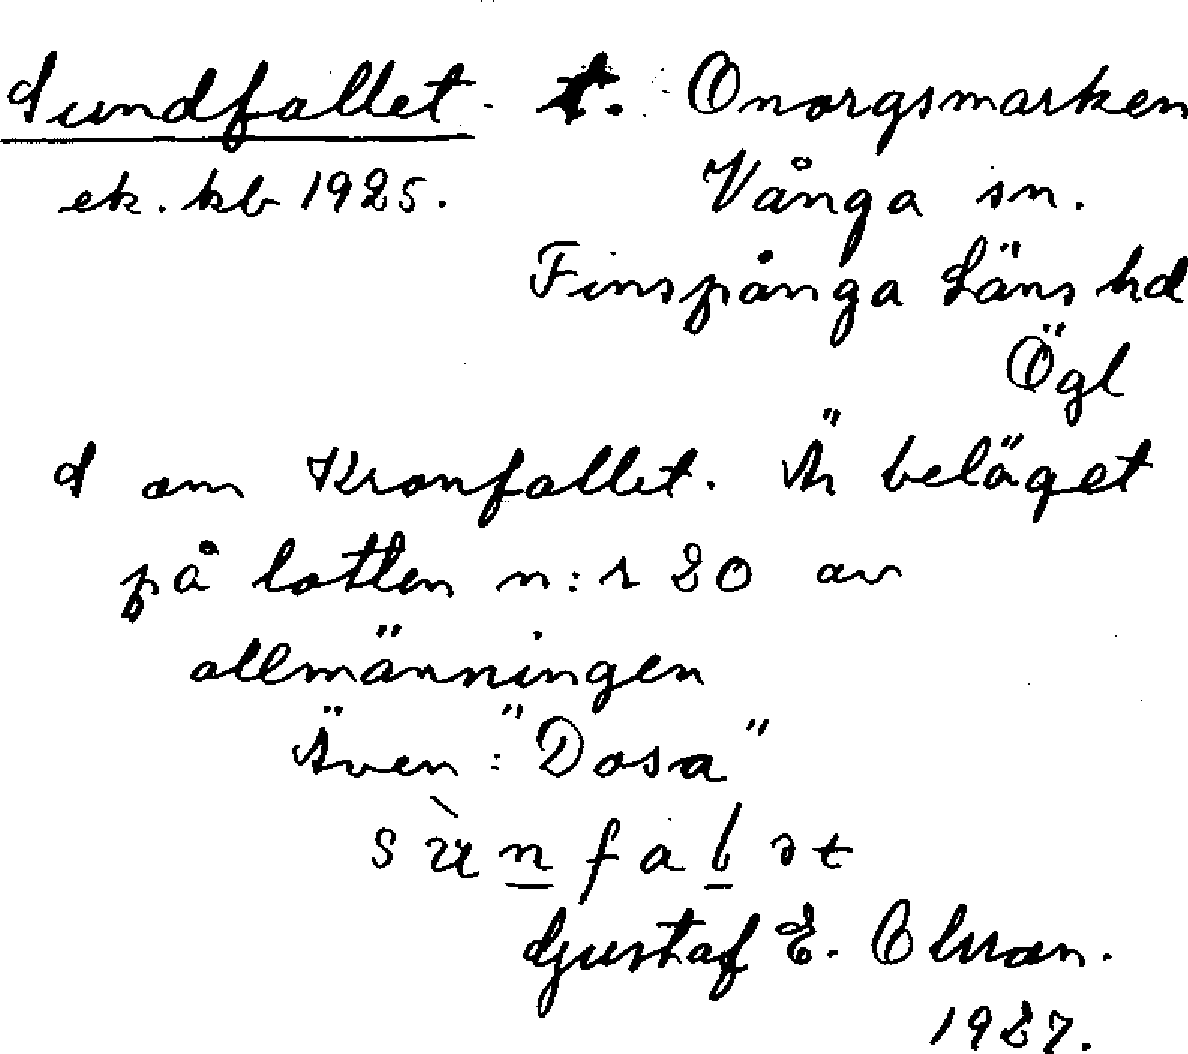 Sundfallet t. Onorgsmarken
ek. kb 1925. Vånga sn.
Finspånga Läns hd
Ögl
S om Kronfallet. Är beläget
på lotten n:r 20 av
allmänningen
Även: "Dosa"
sùnfalət
Gustaf E. Olsson.
1927.